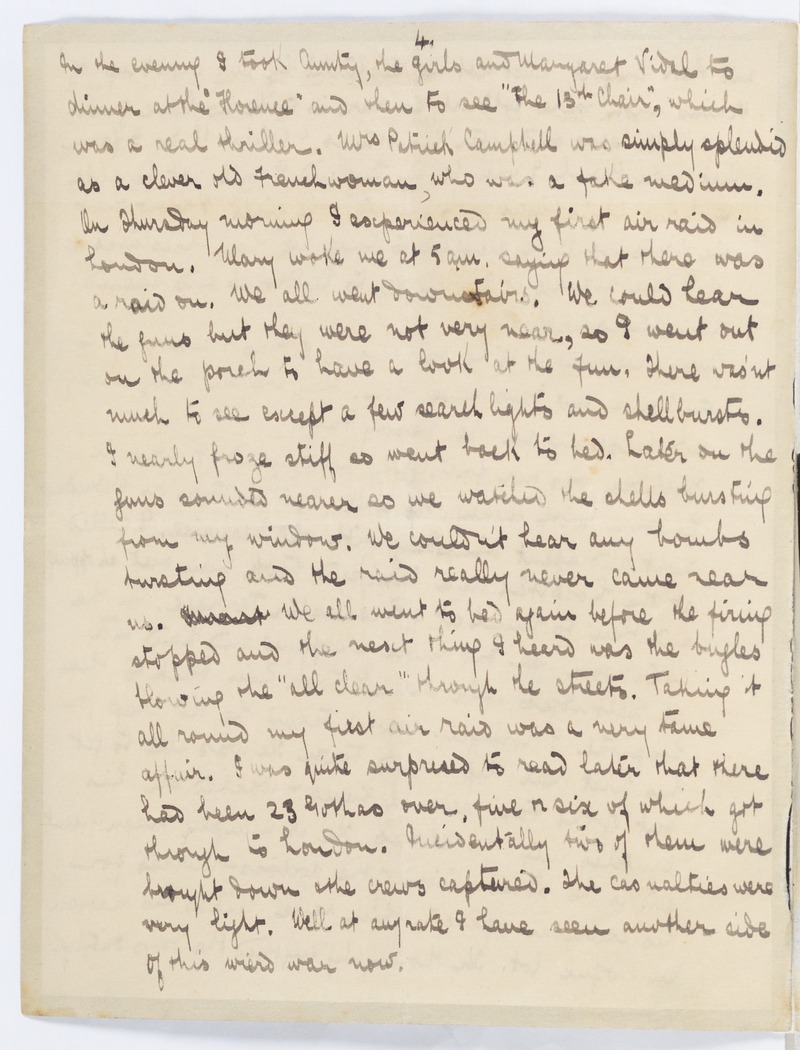 4.
In the evening I took Aunty, the girls and Margaret Vidal to
dinner at the "Florence" and then to see "The 13th Chair", which
was a real thriller. Mrs Patrick Campbell was simply splendid
as a clever old Frenchwoman, who was a fake medium.
On Thursday morning I experienced my first air raid in
London. Mary woke me at 5 am. saying that there was
a raid on. We all went downstairs. We could hear
the guns but they were not very near, so I went out
on the porch to have a look at the fun. There was'nt
much to see except a few searchlights and shellbursts.
I nearly froze stiff so went back to bed. Later on the
guns sounded nearer so we watched the shells bursting
from my window. We couldn't hear any bombs
bursting and the raid really never came near
us. We all went to bed again before the firing
stopped and the next thing I heard was the bugles
blowing the "all clear" through the streets. Taking it
all round my first air raid was a very tame
affair. I was quite surprised to read later that there
had been 23 Gothas over, five or six of which got
through to London. Incidentally two of them were
brought down & the crews captured. The casualties were
very light. Well at any rate I have seen another side
of this wierd war now.